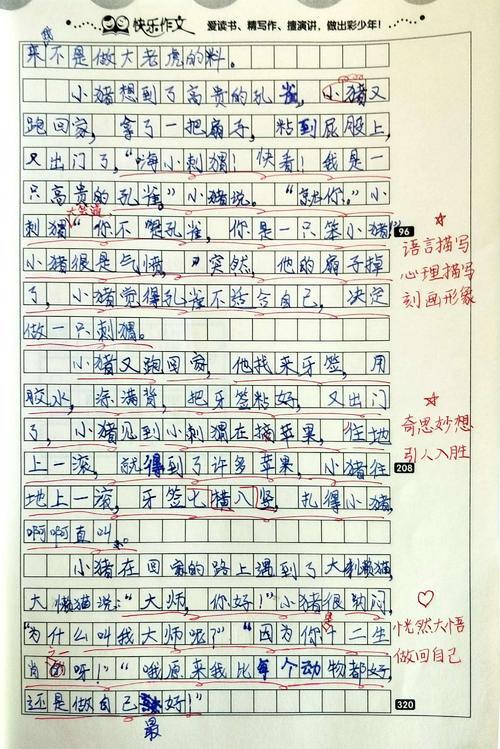 快乐作文 爱读书、精写作、擅演讲，做出彩少年！
我
来不是做大老虎的料。
小猪想到了高贵的孔雀，小猪又
跑回家，拿了一把扇子，粘到屁股上，
又出门了，“嗨小刺猬！快看！我是一
只高贵的孔雀，”小猪说。“就你。”小
大笑道
刺猬“你不是孔雀，你是一只笨小猪！”
96
小猪很是气愤。突然，他的扇子掉
了，小猪觉得孔雀不适合自己，决定
做一只刺猬。
☆
语言描写
心理描写
刻画形象
小猪又跑回家，他找来牙签，用
胶水，涂满背，把牙签粘好，又出门
了，小猪见到小刺猬在摘苹果，往地
上一滚，就得到了许多苹果，小猪往
208
地上一滚，牙签七横八竖，扎得小猪，
啊啊直叫。
☆
奇思妙想
引人入胜
小猪在回家的路上遇到了大懒猫，
大懒猫说：“大师，你好！”小猪很纳闷，
“为什么叫我大师呢？”“因为你是十二生
肖之一呀！”“哦原来我比每个动物都好，
还是做自己最好！”
320
♡
恍然大悟
做回自己